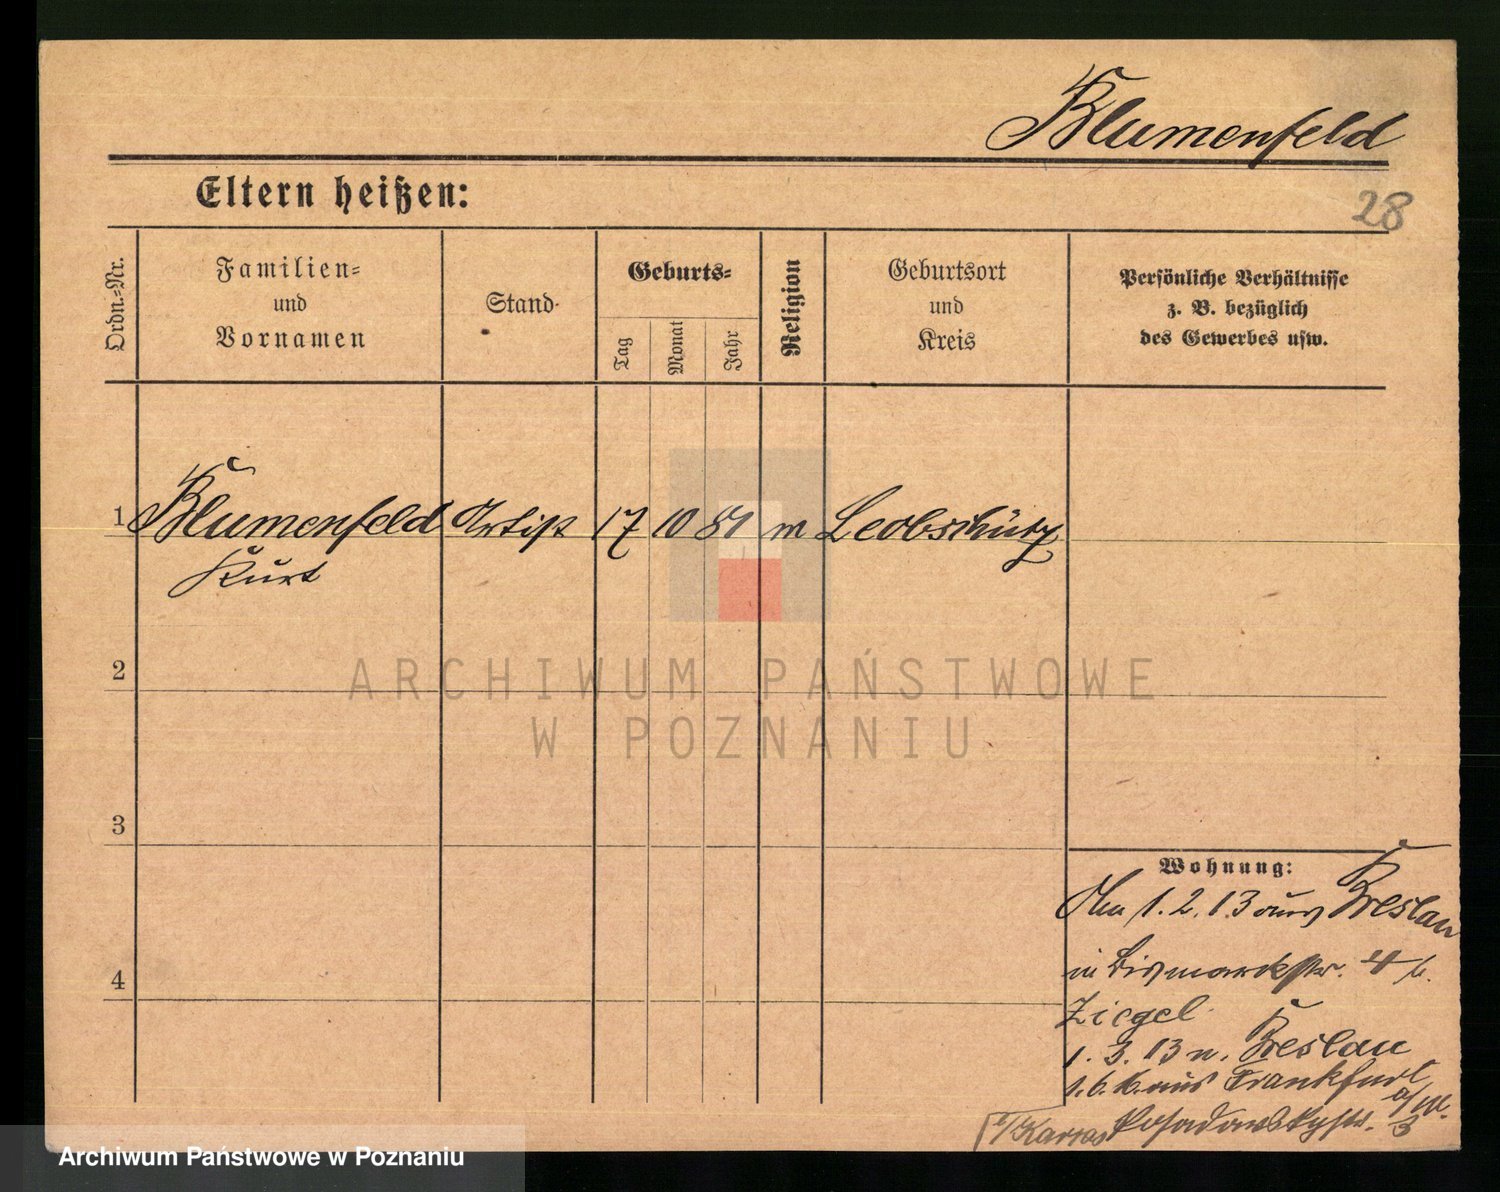 Blumenfeld
Eltern heißen:
28
Ordn.-Nr.
Familien-
und
Vornamen
Stand
Geburts-
Tag
Monat
Jahr
Religion
Geburtsort
und
Kreis
Persönliche Verhältnisse
z. B. bezüglich
des Gewerbes usw.
1 Blumenfeld Artist 17 10 81 m Leobschütz
Kurt
2
ARCHIWUM PAŃSTWOWE
W POZNANIU
3
4
Wohnung:
1. 2. 13 aus Breslau
in Bismarckstr. 4 b.
Ziegel
1. 3. 13 n. Breslau
1. 6. aus Frankfurt
a/M.
Posadowskystr. 3
Archiwum Państwowe w Poznaniu